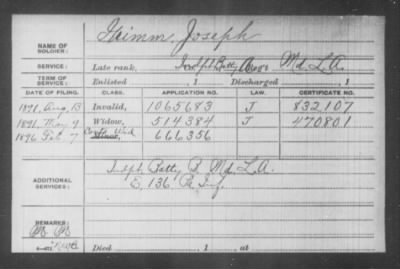 NAME OF SOLDIER: Heimm, Joseph
SERVICE: Late rank, Indpt Batty B Md. L.A.
TERM OF SERVICE: Enlisted , 1 Discharged , 1
DATE OF FILING. CLASS. APPLICATION NO. LAW. CERTIFICATE NO.
1891, Aug. 13 Invalid, 1065683 J 832107
1891, May 9 Widow, 514384 J 470801
1896 Feb 7 Cont Wid Minor, 666356
ADDITIONAL SERVICES: Indpt Batty B Md. L.A.
E, 136 Pa Inf.
REMARKS:
Died , 1 , at